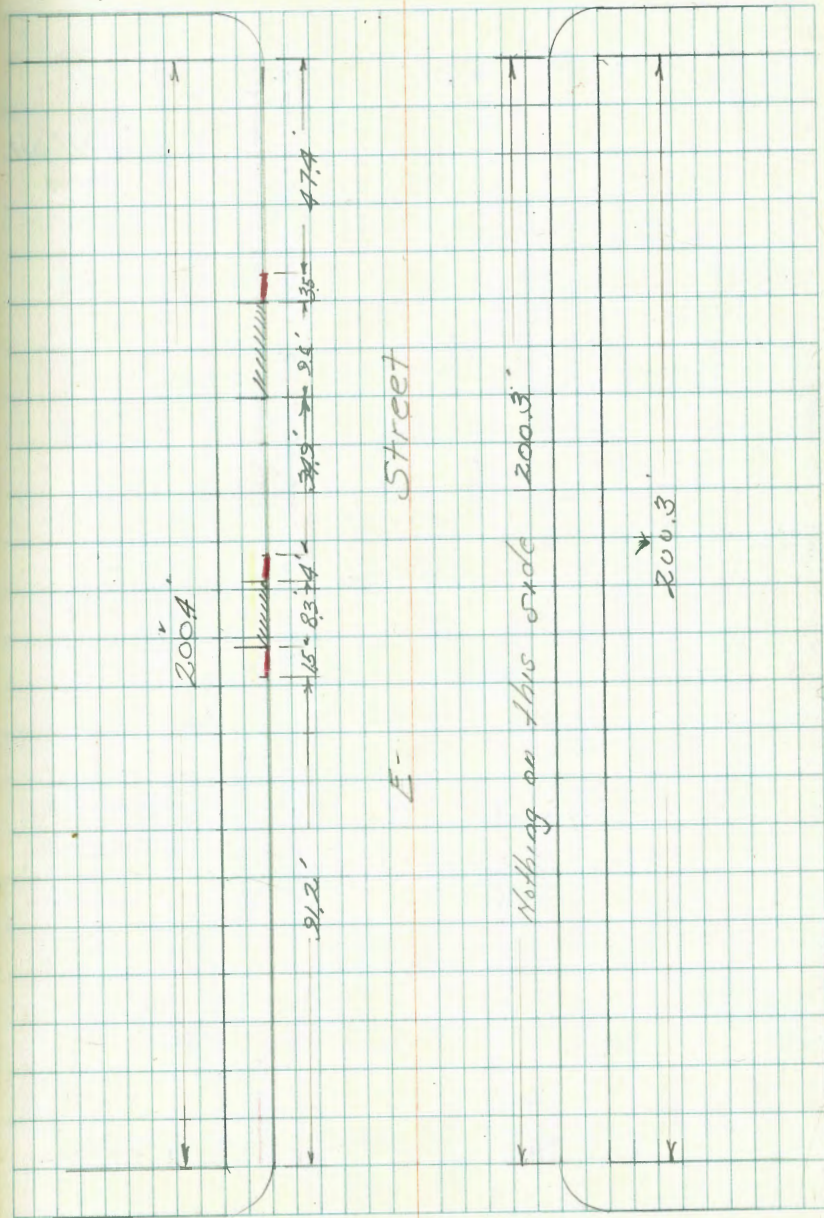 200.4'
91.2' 1.5 8.3' 4' 34.9' 9.6' 3.5 47.4'
E- Street
Nothing on this side 200.3'
200.3'